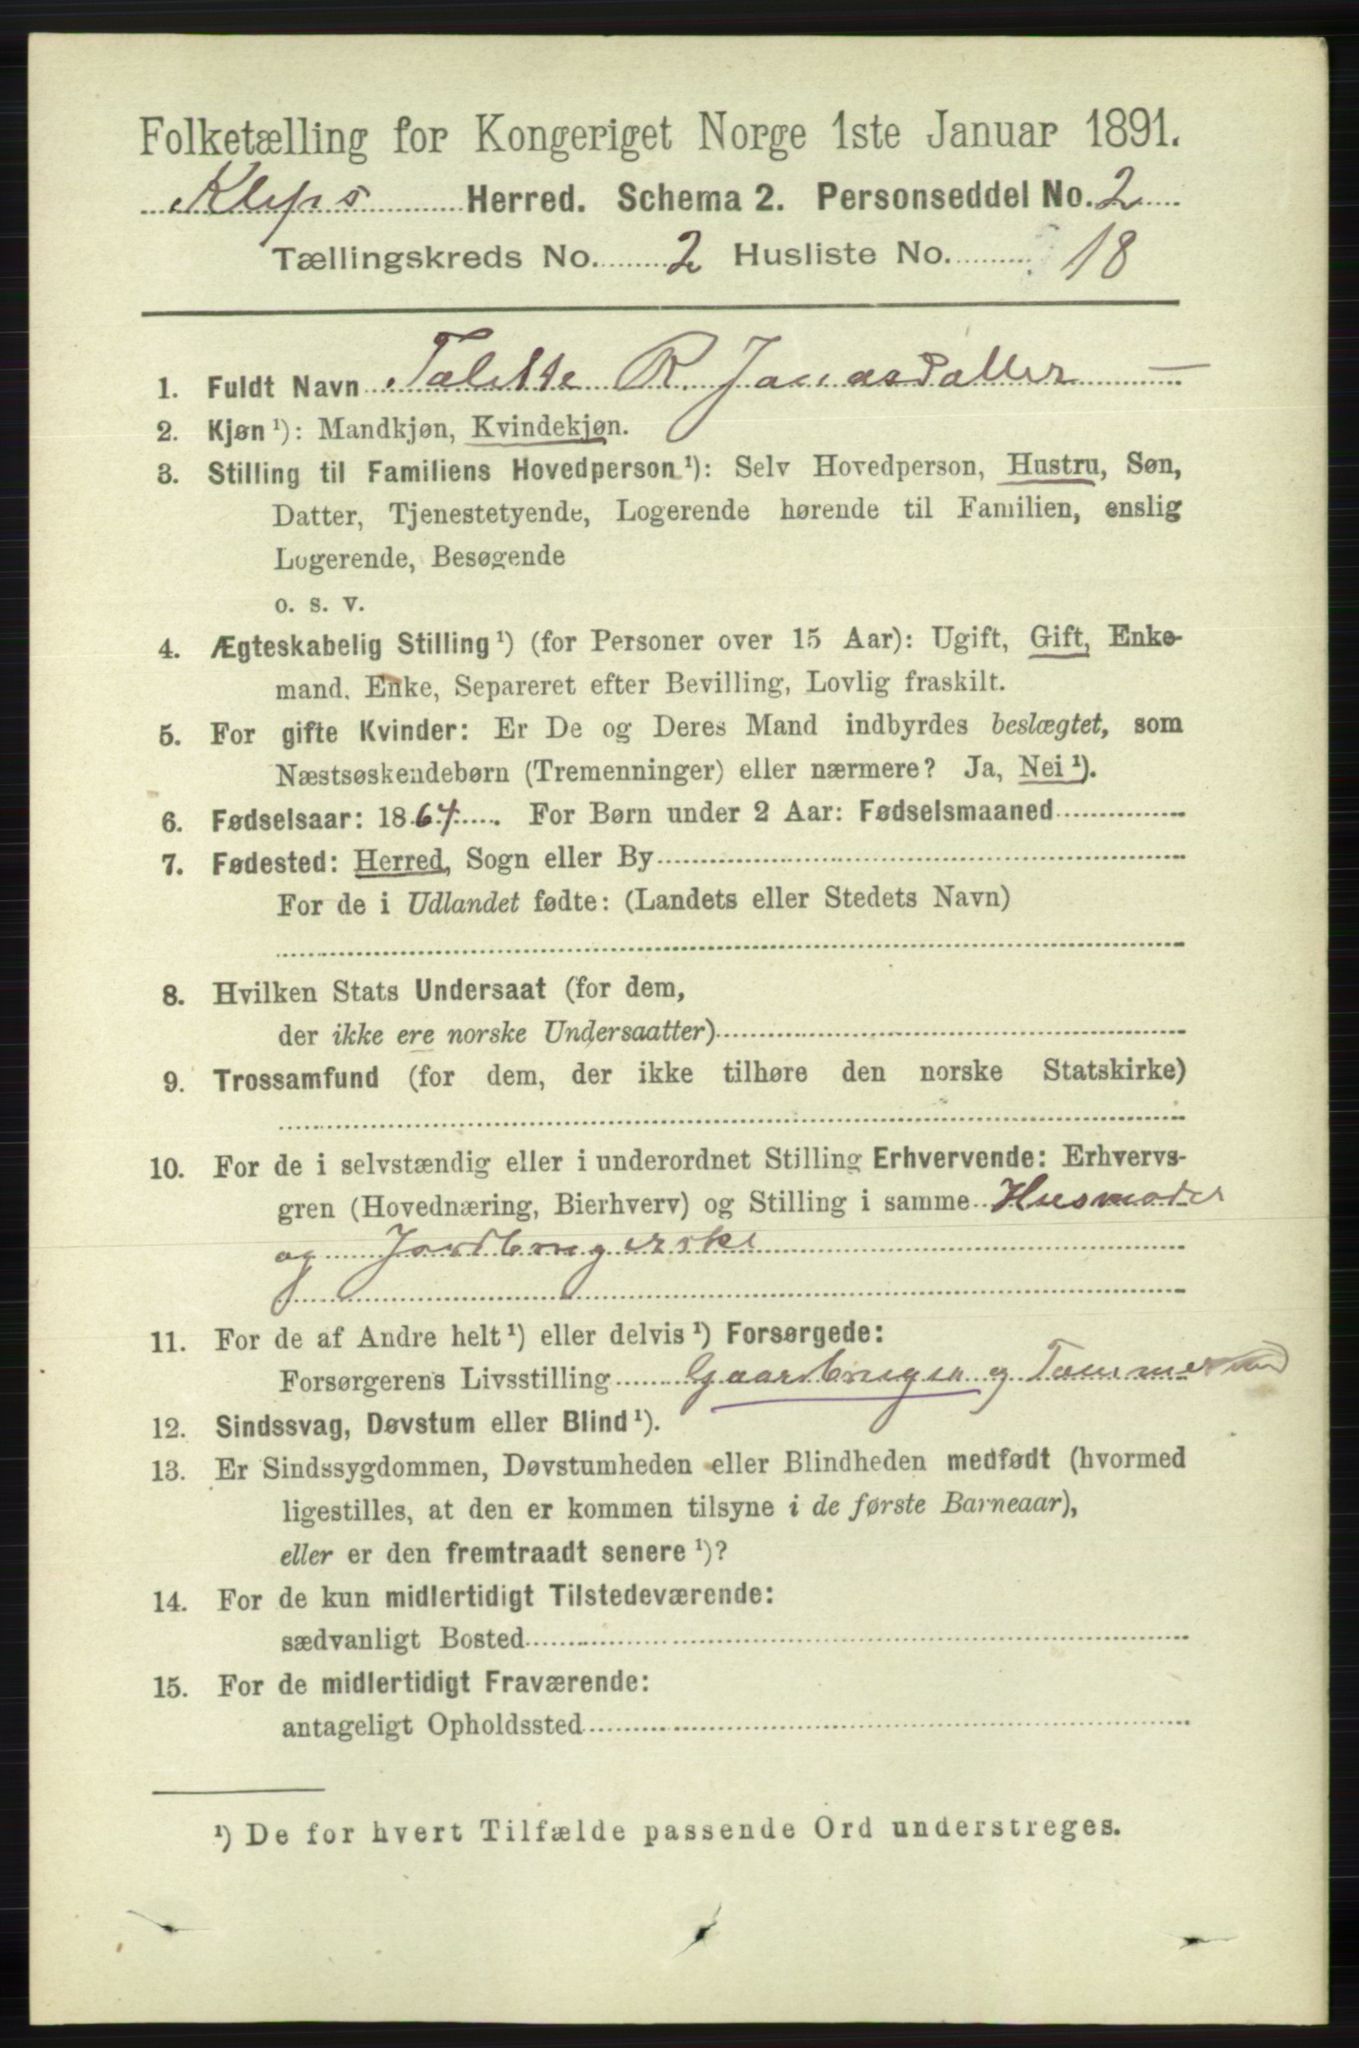 Folketælling for Kongeriget Norge 1ste Januar 1891.
Kleps Herred. Schema 2. Personseddel No. 2
Tællingskreds No. 2 Husliste No. 18
1. Fuldt Navn Talette R. Jonasdatter
2. Kjøn ¹): Mandkjøn, Kvindekjøn.
3. Stilling til Familiens Hovedperson ¹): Selv Hovedperson, Hustru, Søn,
Datter, Tjenestetyende, Logerende hørende til Familien, enslig
Logerende, Besøgende
o. s. v.
4. Ægteskabelig Stilling ¹) (for Personer over 15 Aar): Ugift, Gift, Enke-
mand, Enke, Separeret efter Bevilling, Lovlig fraskilt.
5. For gifte Kvinder: Er De og Deres Mand indbyrdes beslægtet, som
Næstsøskendebørn (Tremenninger) eller nærmere? Ja, Nei ¹).
6. Fødselsaar: 1864. For Børn under 2 Aar: Fødselsmaaned
7. Fødested: Herred, Sogn eller By
For de i Udlandet fødte: (Landets eller Stedets Navn)
8. Hvilken Stats Undersaat (for dem,
der ikke ere norske Undersaatter)
9. Trossamfund (for dem, der ikke tilhøre den norske Statskirke)
10. For de i selvstændig eller i underordnet Stilling Erhvervende: Erhvervs-
gren (Hovednæring, Bierhverv) og Stilling i samme Husmoder
og Jordbrugerske
11. For de af Andre helt ¹) eller delvis ¹) Forsørgede:
Forsørgerens Livsstilling Gaardbruger og
12. Sindssvag, Døvstum eller Blind ¹).
13. Er Sindssygdommen, Døvstumheden eller Blindheden medfødt (hvormed
ligestilles, at den er kommen tilsyne i de første Barneaar),
eller er den fremtraadt senere ¹)?
14. For de kun midlertidigt Tilstedeværende:
sædvanligt Bosted
15. For de midlertidigt Fraværende:
antageligt Opholdssted
¹) De for hvert Tilfælde passende Ord understreges.